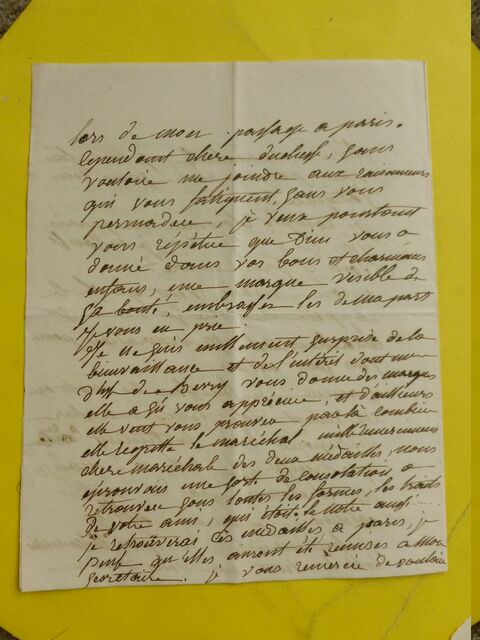 lors de mon passage a paris.
Cependant chere duchesse, sans
vouloire me joindre aux raisonneurs
qui vous fatiguent, sans vous
persuadere, je veux pourtant
vous repetere que Dieu vous a
donné dans vos bons et charmans
enfans, une marque visible de
sa bonté, embrasses les de ma part
je vous en prie.
Je ne suis nullement surprise de la
bienveillance et de l'interét dont
de Berry vous donne des marques
elle a sû vous apprecier, et d'ailleurs
elle veut vous prouver par la combien
elle regrette le maréchal. mille
chere maréchale des deux médailles, nous
éprouvons une sorte de consolation a
retrouver sous toutes les formes, les traits
de votre ami, qui étoit le notre aussi
je retrouverai ces médailles a paris, je
qu'elles auront été remises a mon
secretaire. je vous remercie de vouloir